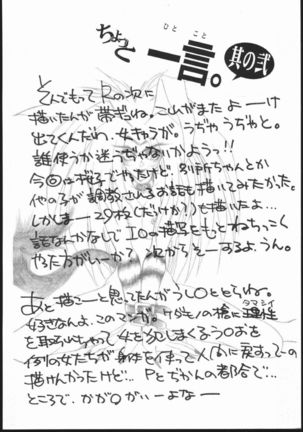 ちょっと一言。
ひと こと
其の弐
そんでもってRの次に
描いたんが帯ギね。こいがまた よーーけ
出てくんだわ、女キャラが。うぢゃうぢゃと。
誰使うか迷っぢゃないかようっ!!
今回は桜子でやったけど、別所ちゃんとか
他の子が調教さんるお話も描いてみたかった。
しかしまー29P(だけか?)も描いたよ…
話なんかなしで IOの描写をもっとねちっこく
やた方がいーか? 次からそーするよ、うん。
あと描こーと思ってたんがうしOととらね。
好きなんよ、このマンガ。ケダモノの槍に理性
タマシイ
を取らいちゃって女を犯しまくるうOおを
例の女たちが身体を使ってメ(分に戻すってーの
描けんかったけど… Pとぢかんの都合で…
ところで、かがQがいーよなー